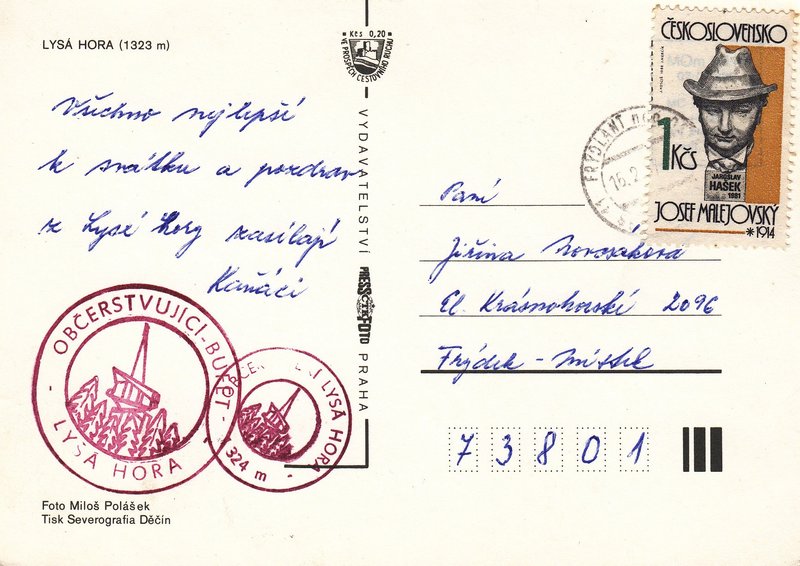 LYSÁ HORA (1323 m)
Kčs 0,20
VE PROSPĚCH CESTOVNÍHO RUCHU
Všechno nejlepší
k svátku a pozdrav
z Lysé hory zasílají
Kaňáci
OBČERSTVUJÍCÍ-BUFET
- LYSÁ HORA -
LYSÁ HORA
1324 m
Foto Miloš Polášek
Tisk Severografia Děčín
VYDAVATELSTVÍ PRESSFOTO PRAHA
ČESKOSLOVENSKO
1 Kčs
JAROSLAV
HAŠEK
1981
JOSEF MALEJOVSKÝ
*1914
FRÝDLANT NAD
16.2.
Paní
Jiřina
El. Krásnohorské 2096
Frýdek - Místek
73801